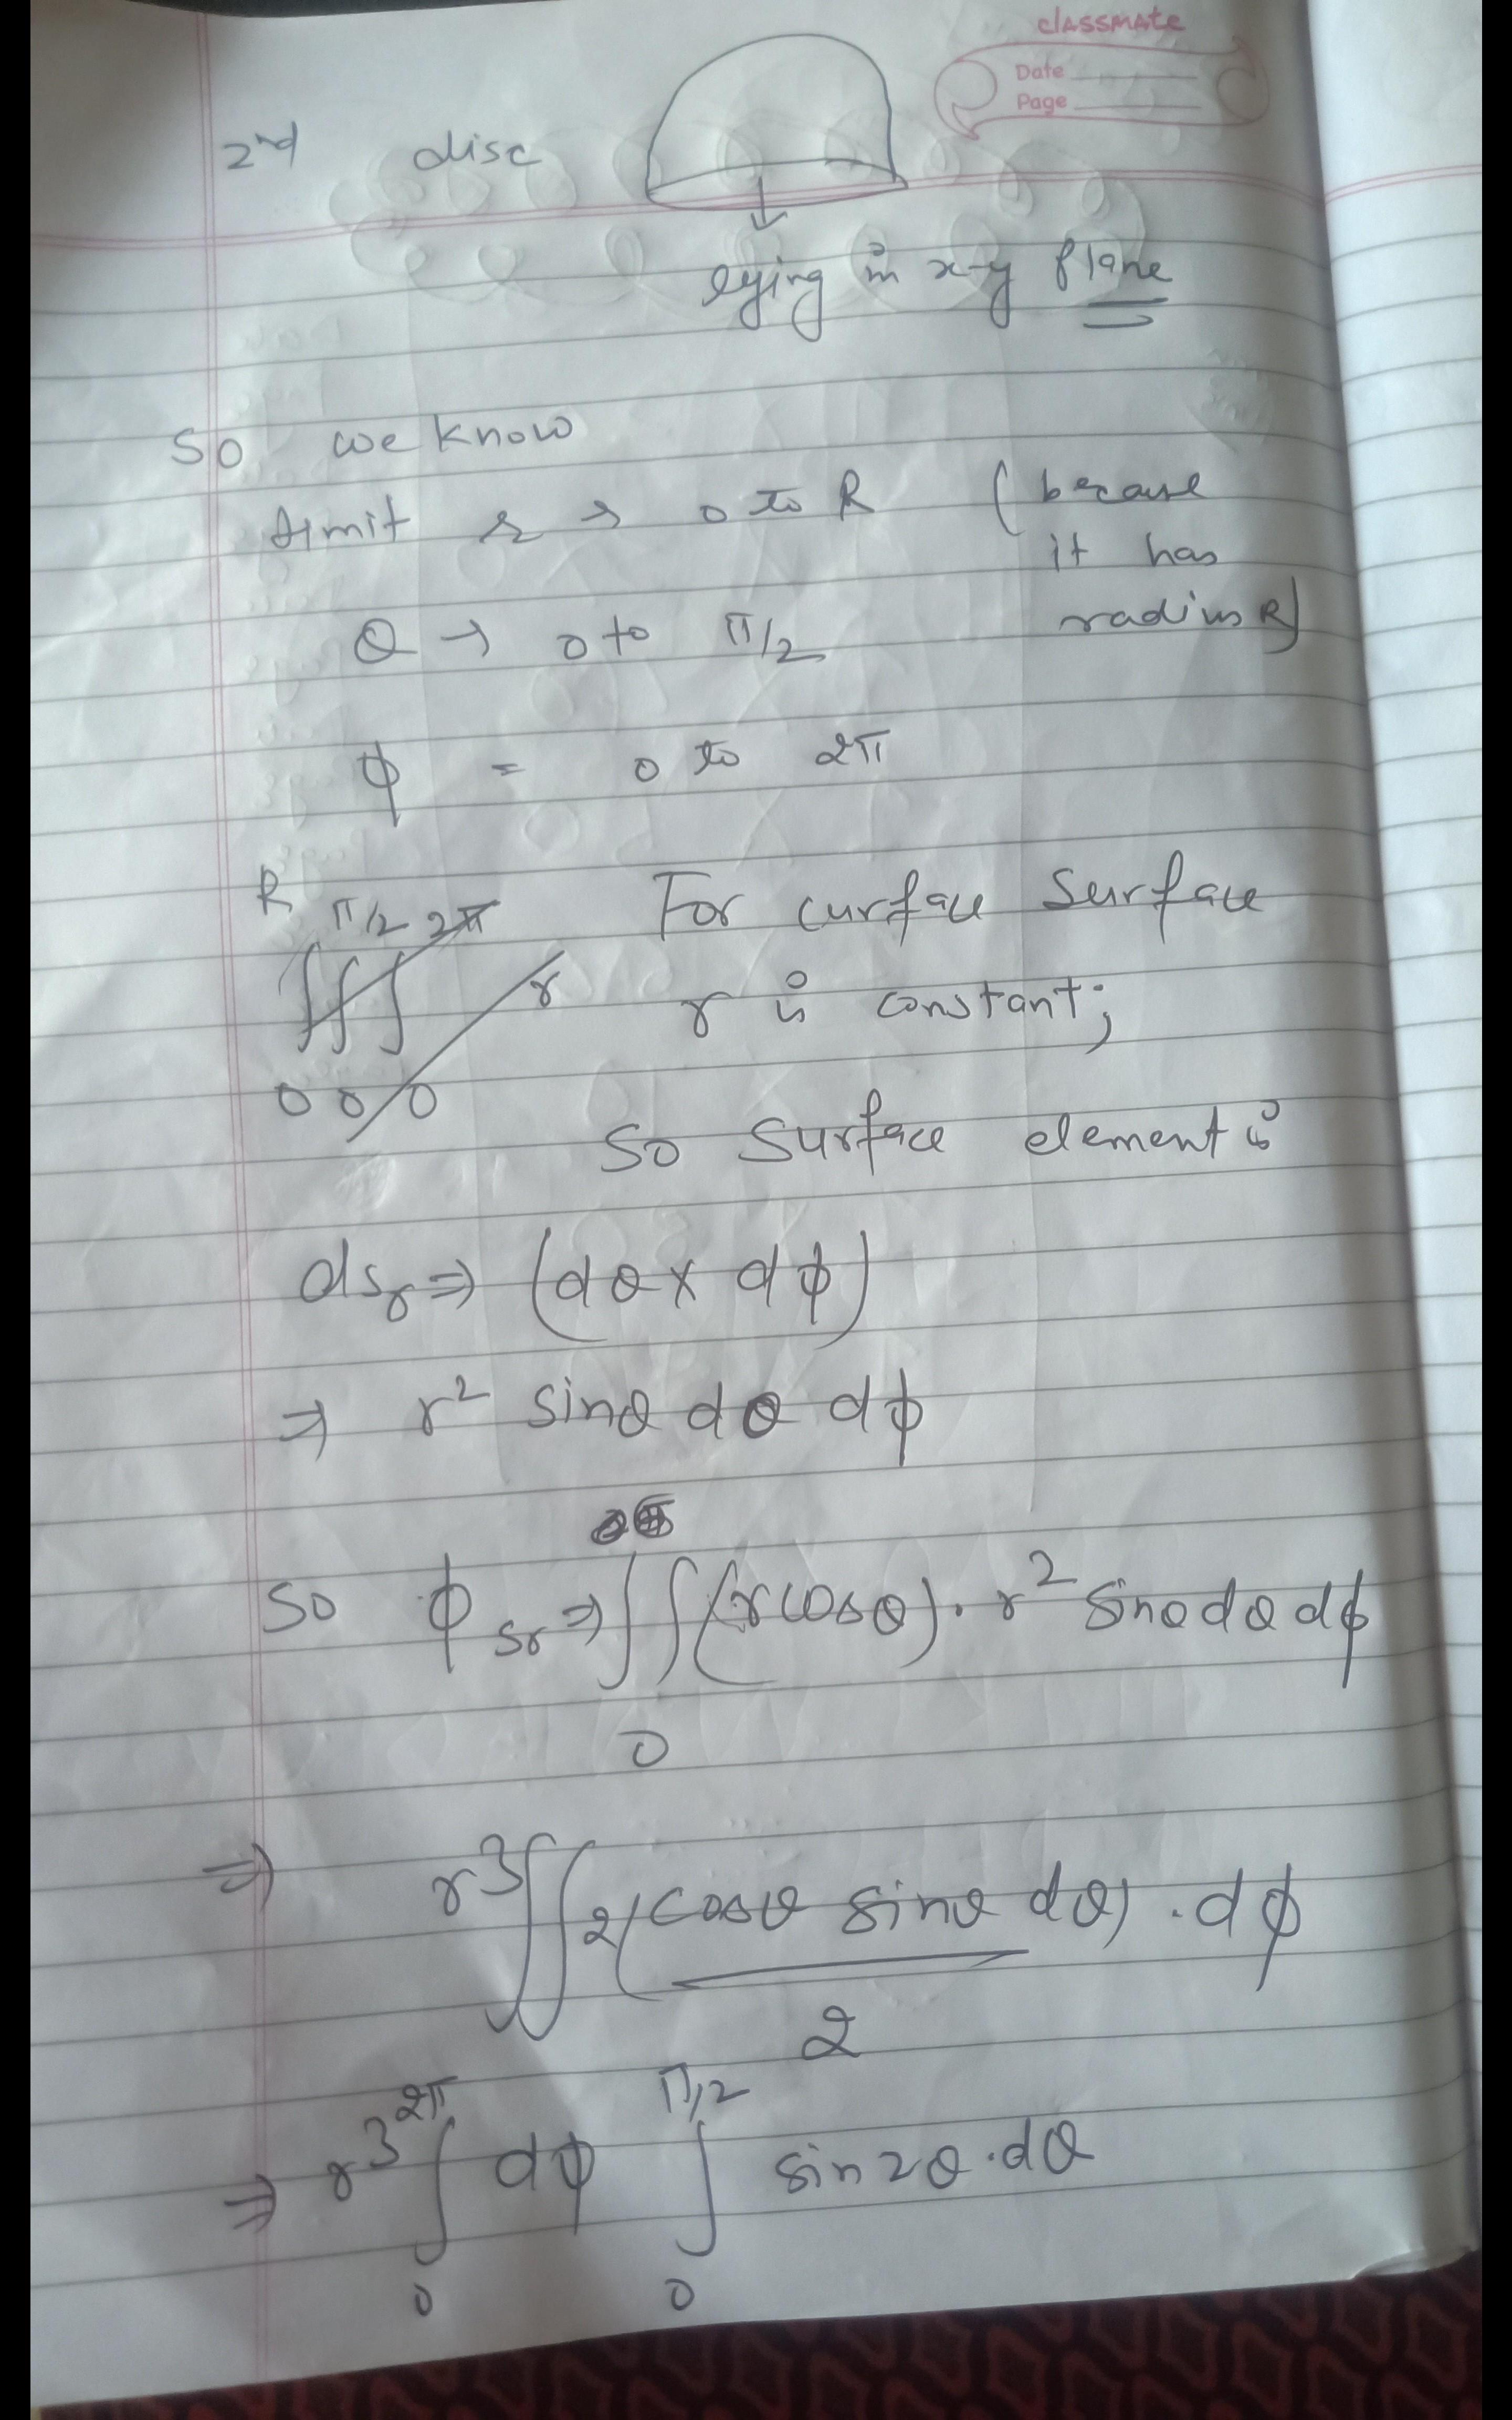 classmate
Date
Page
2nd disc
lying in x-y plane
So we know
limit r → 0 to R (because
it has
radius R)
θ → 0 to π/2
ϕ = 0 to 2π
R π/2 2π
∫∫∫ r
0 0 0
For curface Surface
r is constant;
So Surface element is
dsr ⇒ (dθ × dϕ)
⇒ r² sinθ dθ dϕ
So ϕsr ⇒ ∫∫(r cosθ). r² sinθ dθ dϕ
0
⇒ r³ ∫∫ 2(cosθ sinθ dθ) . dϕ
2
⇒ r³ 2π∫0 dϕ π/2∫0 sin2θ.dθ